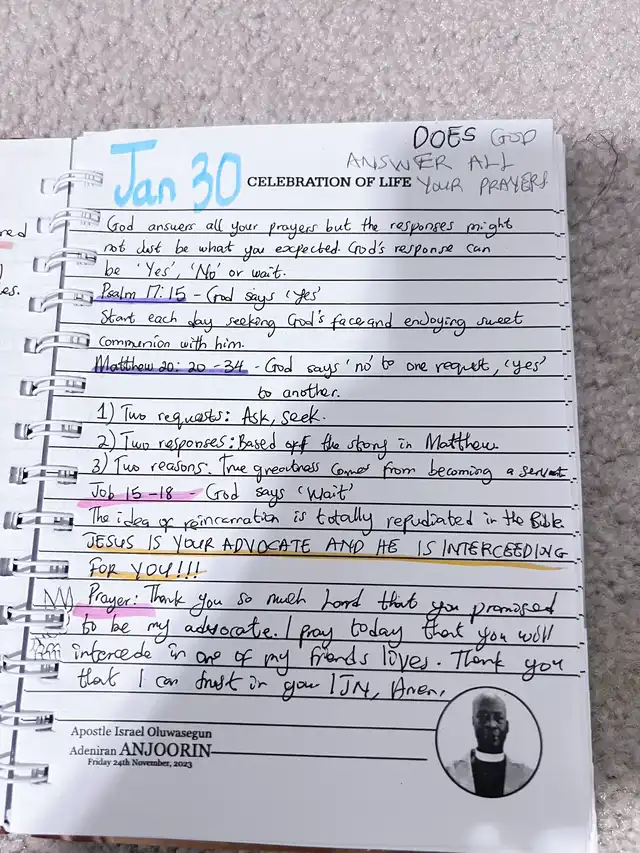 DOES GOD
ANSWER ALL
Jan 30
CELEBRATION OF LIFE YOUR PRAYERS
God answers all your prayers but the responses might
not just be what you expected. God's response can
be 'Yes', 'No' or wait.
Psalm 17:15 - God says 'Yes'
Start each day seeking God's face and enjoying sweet
communion with him.
Matthew 20: 20-34 - God says 'no' to one request, 'yes'
to another.
1) Two requests: Ask, seek.
2) Two responses: Based off the story in Matthew
3) Two reasons: True greatness comes from becoming a servant
Job 15-18 - God says 'Wait'
The idea of reincarnation is totally repudiated in the Bible
JESUS IS YOUR ADVOCATE AND HE IS INTERCEEDING
FOR YOU!!!
Prayer: Thank you so much Lord that you promised
to be my advocate. I pray today that you will
intercede in one of my friends lives. Thank you
that I can trust in you IJN, Amen,
Apostle Israel Oluwasegun
Adeniran ANJOORIN
Friday 24th November, 2023
red
es.